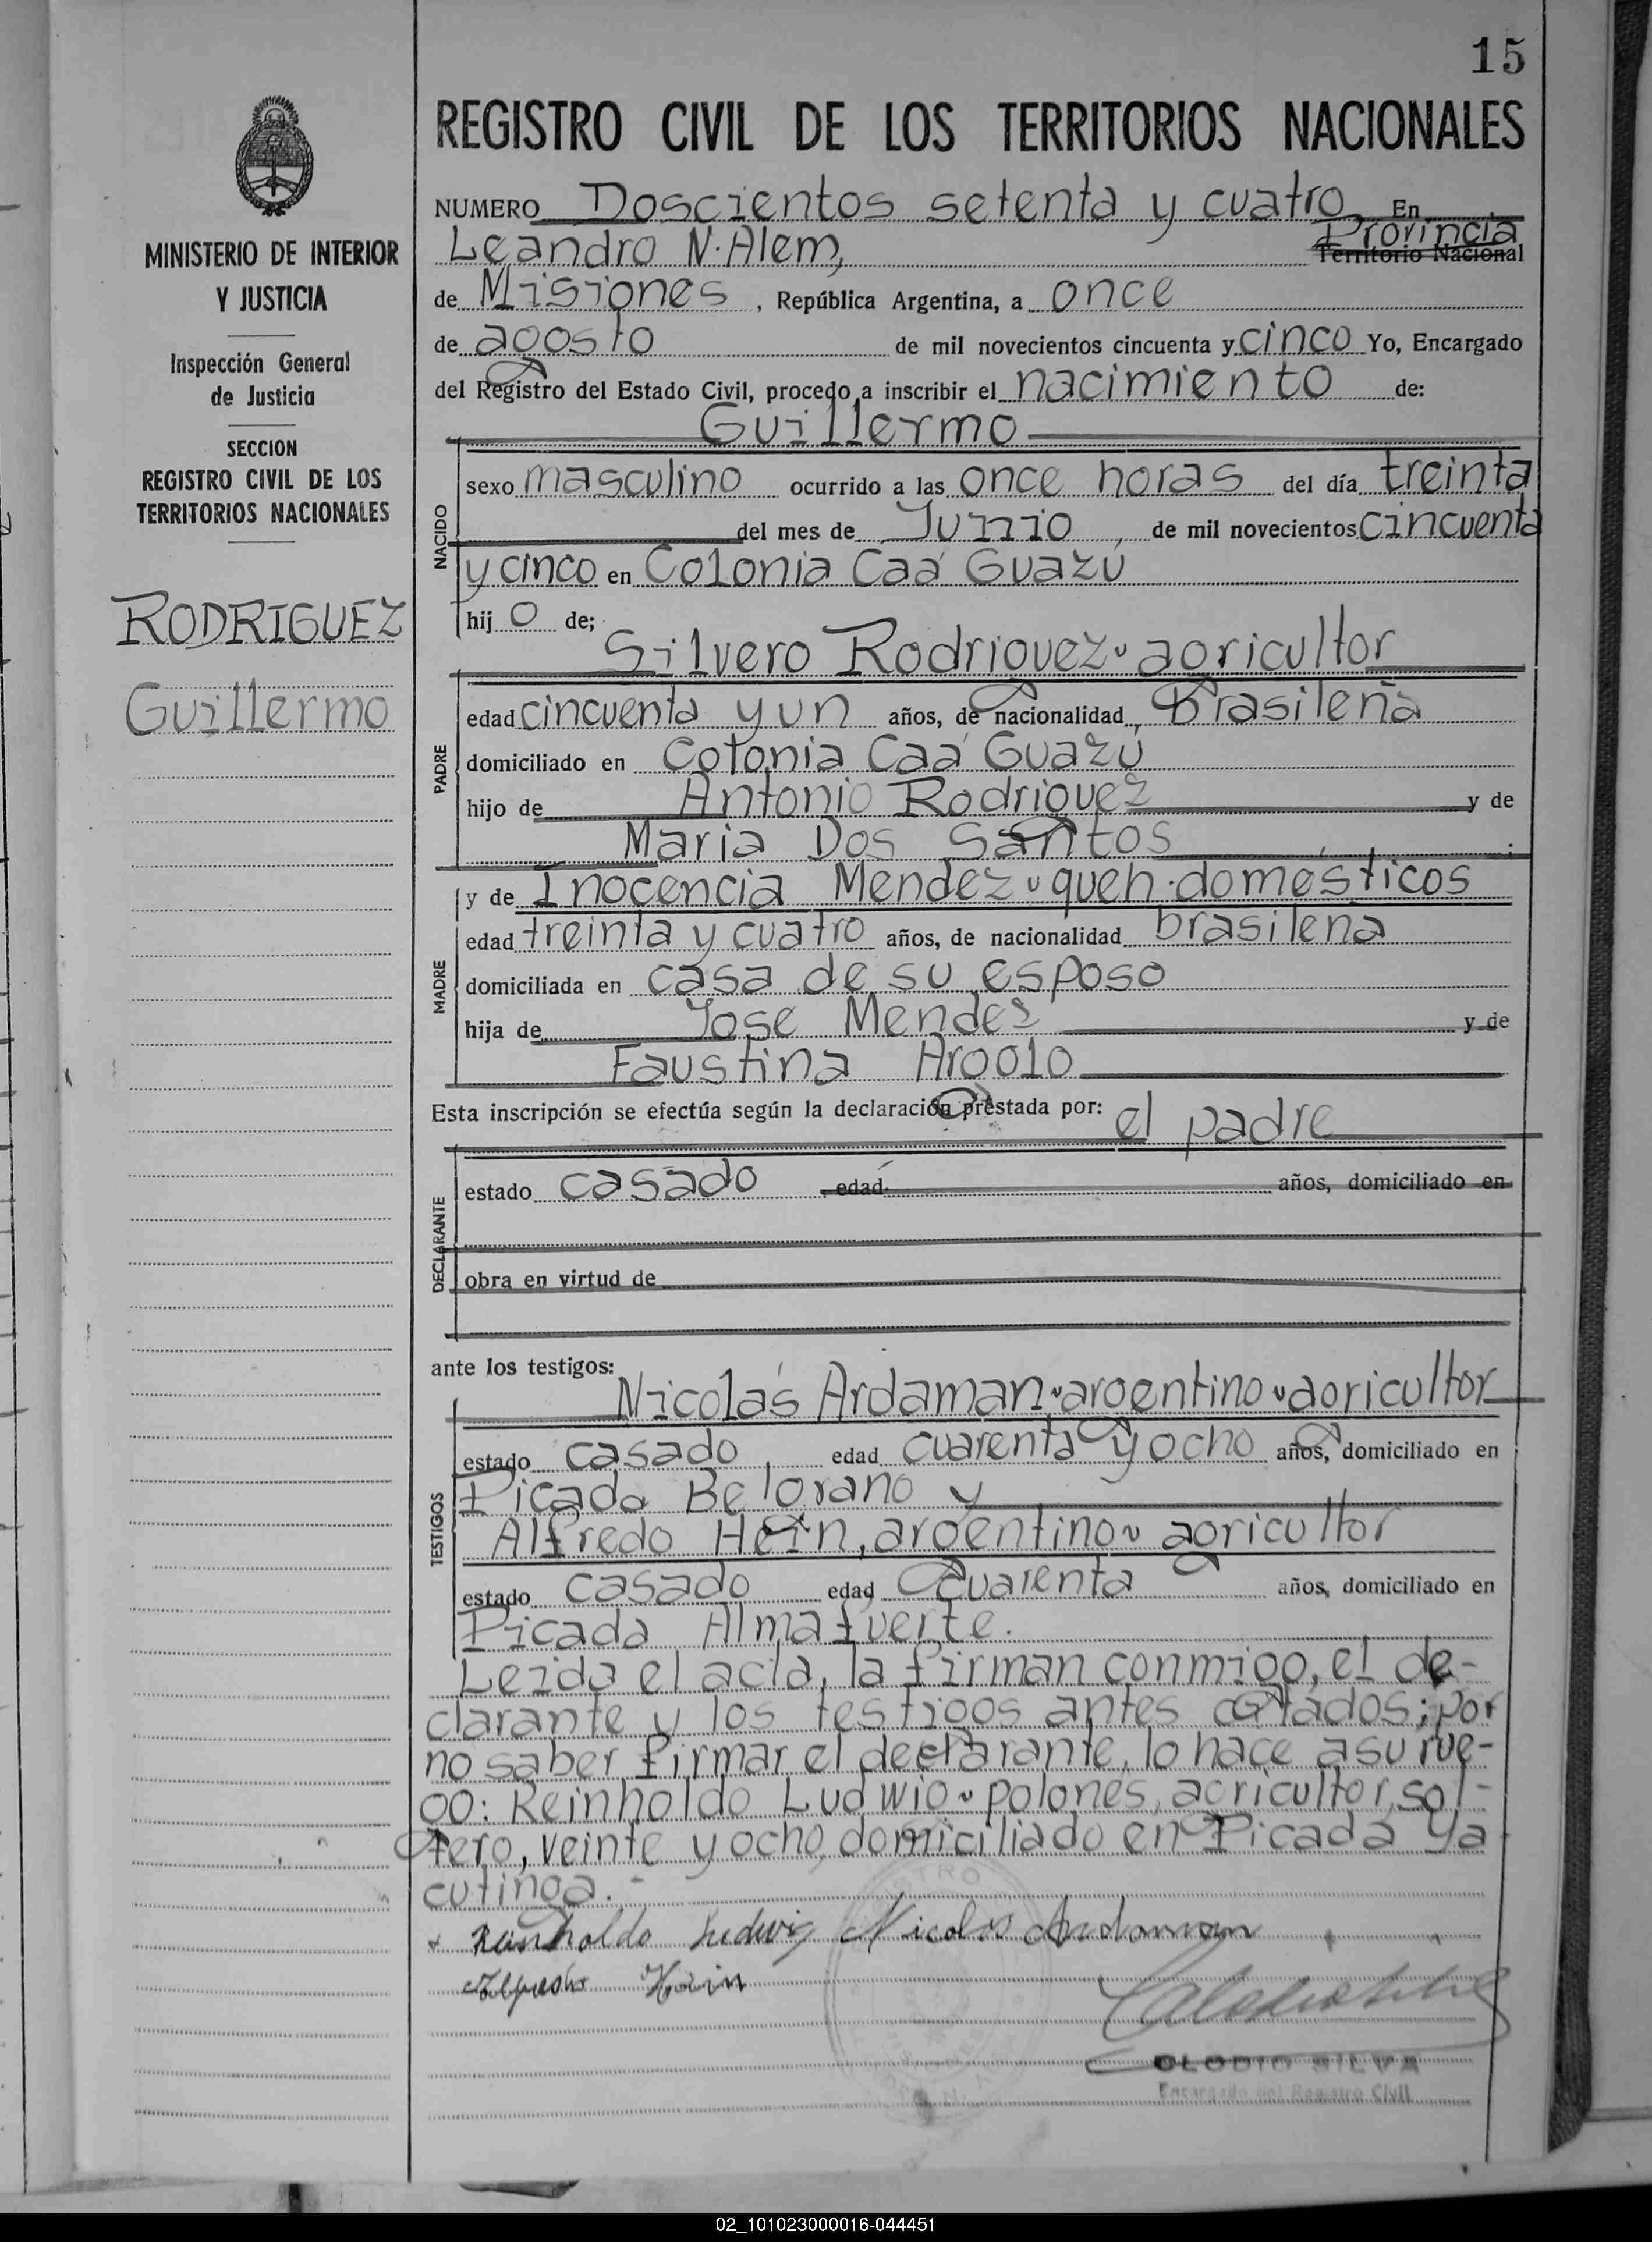 15
REGISTRO CIVIL DE LOS TERRITORIOS NACIONALES
MINISTERIO DE INTERIOR
Y JUSTICIA
Inspección General
de Justicia
SECCION
REGISTRO CIVIL DE LOS
TERRITORIOS NACIONALES
RODRIGUEZ
Guillermo
NUMERO Doscientos setenta y cuatro, En
Leandro N. Alem, Provincia Territorio Nacional
de Misiones, República Argentina, a once
de agosto de mil novecientos cincuenta y cinco Yo, Encargado
del Registro del Estado Civil, procedo a inscribir el nacimiento de:
Guillermo
NACIDO
sexo masculino ocurrido a las once horas del día treinta
del mes de Junio, de mil novecientos cincuenta
y cinco en Colonia Caá Guazú
hijo de;
Silvero Rodriguez agricultor
PADRE
edad cincuenta y un años, de nacionalidad Brasileña
domiciliado en Colonia Caá Guazú
hijo de Antonio Rodriguez y de
Maria Dos Santos
y de Inocencia Mendez queh. domésticos
MADRE
edad treinta y cuatro años, de nacionalidad brasileña
domiciliada en casa de su esposo
hija de Jose Mendez y de
Faustina Argolo
Esta inscripción se efectúa según la declaración prestada por: el padre
DECLARANTE
estado casado edad años, domiciliado en
obra en virtud de
ante los testigos:
Nicolás Ardaman argentino agricultor
TESTIGOS
estado casado, edad cuarenta y ocho años, domiciliado en
Picada Belgrano y
Alfredo Hein, argentino agricultor
estado casado edad cuarenta años, domiciliado en
Picada Almafuerte.
Leida el acta, la firman conmigo, el de-
clarante y los testigos antes citados; por
no saber firmar el declarante, lo hace a su rue-
go: Reinholdo Ludwig polonés, agricultor, sol-
tero, veinte y ocho, domiciliado en Picada Ya
cutinga.-
Reinholdo Ludwig Nicolas Ardaman
Alfredo Hein
CLODIO SILVA
Encargado del Registro Civil
02_101023000016-044451